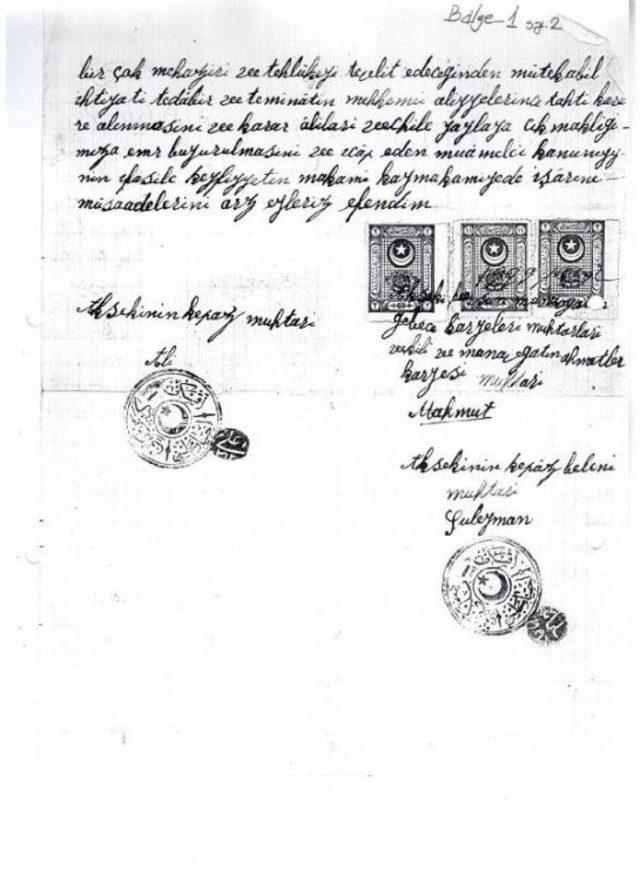 Belge-1 sy.2
bir çok mehaziri ve tehlükeyi tevlit edeceğinden mütekabil
ihtiyati tedabir ve teminatın mehkemei aliyyelerince tahti kara
re alınmasını ve karar âlileri vechile yaylaya çıkmaklığı-
mıza emr buyurulmasını ve icap eden muamelei kanuniyye-
nin ifasile keyfiyyetin makamı kaymakamiyede işarına
müsaadelerini arz eyleriz efendim
Aksekinin kepaz muhtarı
Ali
gebece karyeleri muhtarları
vekili ve manavgatın ahmatler
karyesi muhtarı
Mahmut
Aksekinin kepaz beleni
muhtarı
Suleyman